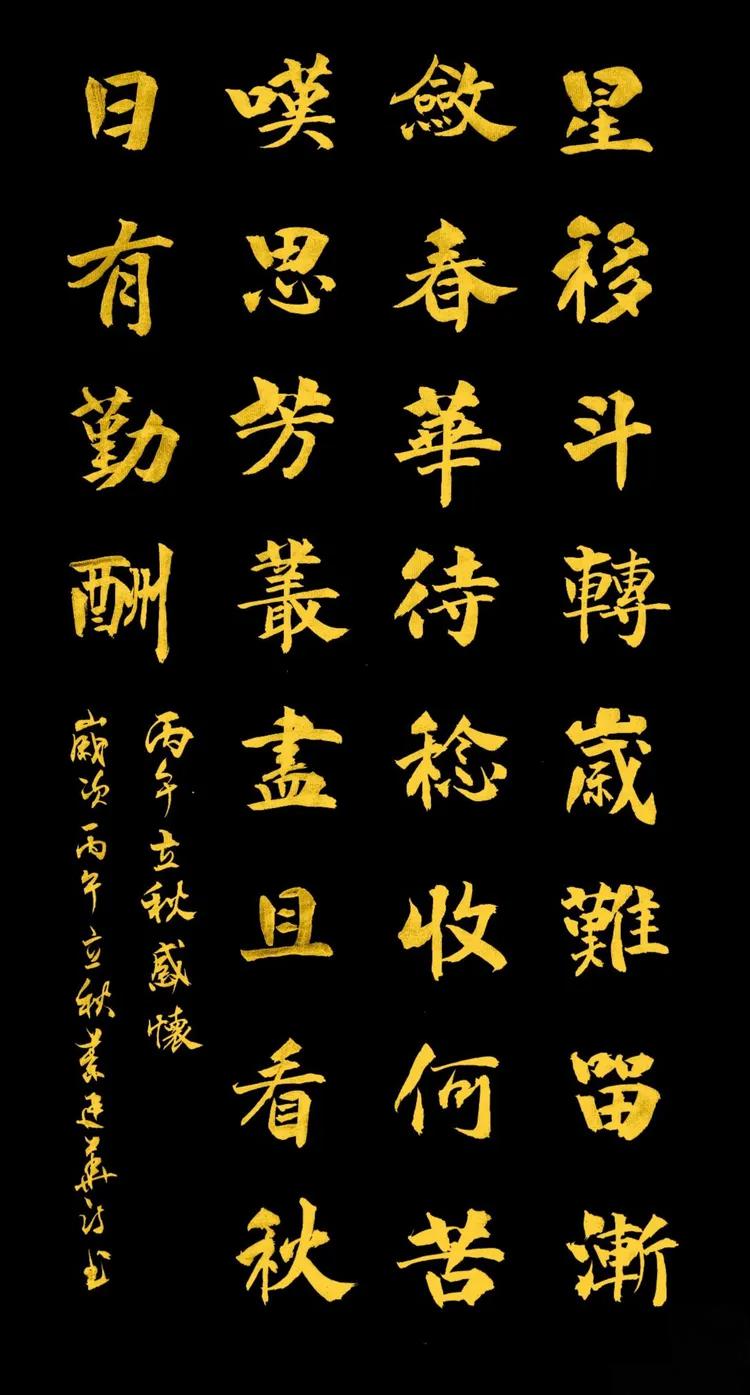 星移斗轉歲難留漸
斂春華待稔收何苦
嘆思芳叢盡且看秋
日有勤酬
丙午立秋感懷
歲次丙午立秋建華詩書